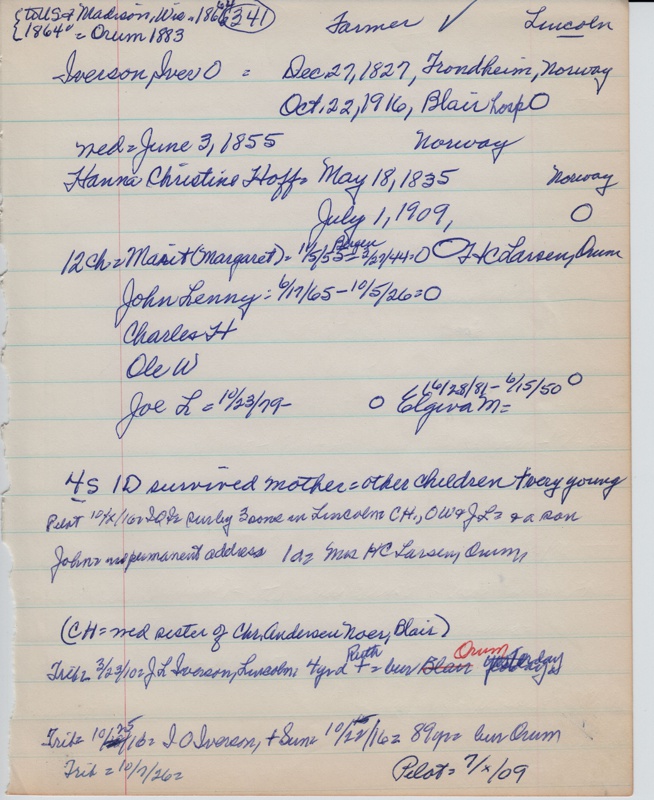 to US & Madison, Wis = 1864 341 Farmer ✓ Lincoln
1864 = Orum 1883
Iverson, Iver O = Dec. 27, 1827, Trondheim, Norway
Oct. 22, 1916, Blair hosp O
med = June 3, 1855 Norway
Hanna Christine Hoff = May 18, 1835 Norway
July 1, 1909, O
12 ch = Marit (Margaret) = 11/5/55 Bergen - 3/27/44 = O O HC Larsen, Orum
John Lenny = 6/17/65 - 10/5/26 = O
Charles H
Ole W
Joe L = 10/23/79 - O Elgiva M = 10/28/81 - 6/15/50 O
4s 1D survived mother = other children + very young
Pilot 10/x/16 = I O I = sur by 3 sons in Lincoln = CH, OW & JL = & a son
John = no permanent address 1d = Mrs HC Larsen, Orum,
(CH = med sister of Chr. Andersen Noer, Blair)
Trib = 3/23/10 = J L Iverson, Lincoln, 4 yr d Ruth + = bur Blair Orum yesterday
Trib = 10/25/16 = I O Iverson, + Sun = 10/22/16 = 89 yr = bur Orum
Trib = 10/7/26 = Pilot = 7/x/09